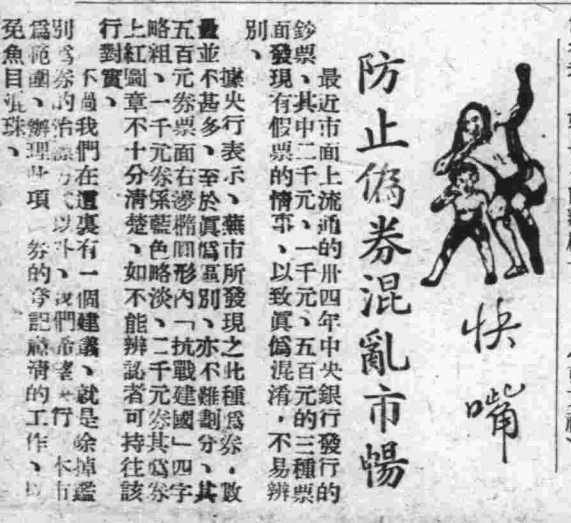 快嘴
防止偽券混亂市暢
最近市面上流通的卅四年中央銀行發行的
鈔票、其中二千元、一千元、五百元的三種票
面發現有假票的情事、以致眞僞混淆，不易辨
別、
據央行表示、蕪市所發現之此種僞券，數
量並不甚多、至於眞僞區別、亦不難劃分、其
五百元券票面右邊橢圓形內「抗戰建國」四字
略粗、一千元券係藍色略淡、二千元券其僞券
上紅圖章不十分清楚、如不能辨認者可持往該
行對實、
不過我們在這裏有一個建議、就是除掉鑑
別僞券的方式以外、我們希望央行 本市
爲範圍、辦理此項 券的登記 清的工作、以
免魚目混珠、